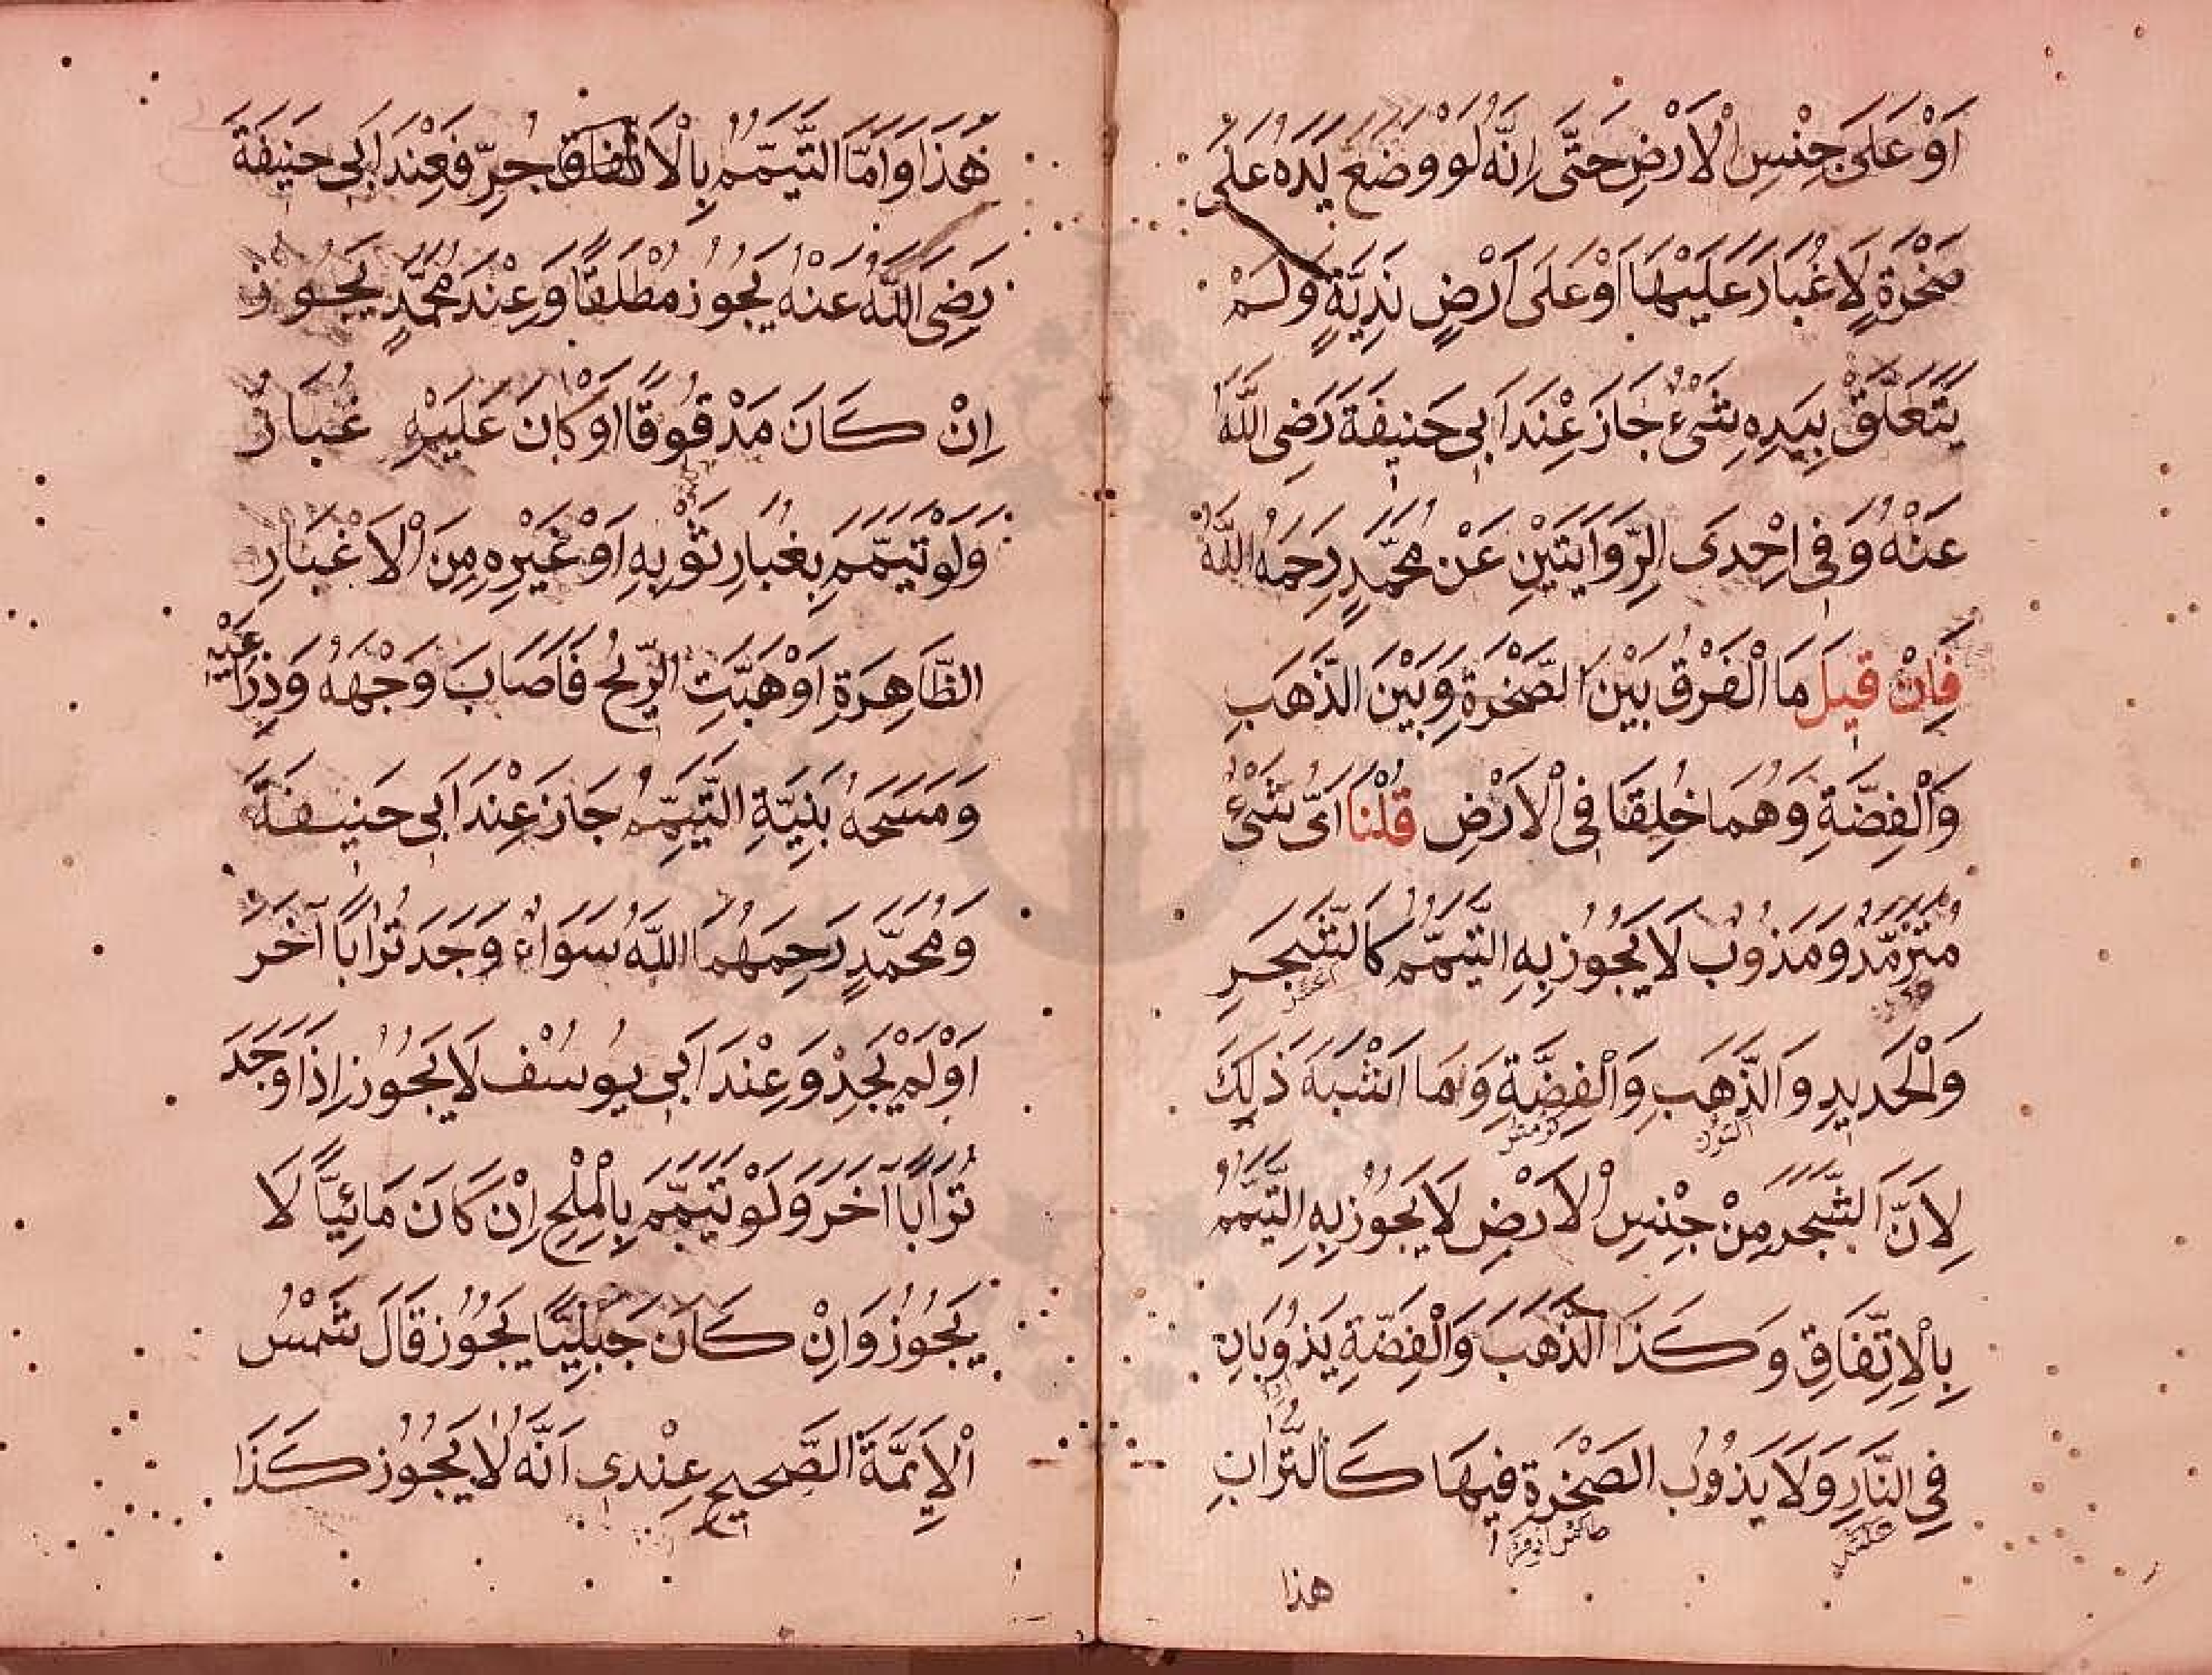 اَوْ عَلَى جِنْسِ الْاَرْضِ حَتَّى اِنَّهُ لَوْ وَضَعَ يَدَهُ عَلَى
صَخْرَةٍ لَا غُبَارَ عَلَيْهَا اَوْ عَلَى اَرْضٍ نَدِيَّةٍ وَلَمْ
يَتَعَلَّقْ بِيَدِهِ شَىْءٌ جَازَ عِنْدَ اَبِى حَنِيفَةَ رَضِىَ اللّٰهُ
عَنْهُ وَفِى اِحْدَى الرِّوَايَتَيْنِ عَنْ مُحَمَّدٍ رَحِمَهُ اللّٰهُ
فَاِنْ قِيلَ مَا الْفَرْقُ بَيْنَ الصَّخْرَةِ وَبَيْنَ الذَّهَبِ
وَالْفِضَّةِ وَهُمَا خُلِقَا فِى الْاَرْضِ قُلْنَا اَىُّ شَىْءٍ
مُتَرَمِّدٌ وَمَذُوبٌ لَا يَجُوزُ بِهِ التَّيَمُّمُ كَالشَّجَرِ
وَالْحَدِيدِ وَالذَّهَبِ وَالْفِضَّةِ وَمَا اَشْبَهَ ذَلِكَ
لِاَنَّ الشَّجَرَ مِنْ جِنْسِ الْاَرْضِ لَا يَجُوزُ بِهِ التَّيَمُّمُ
بِالْاِتِّفَاقِ وَكَذَا الذَّهَبُ وَالْفِضَّةُ يَذُوبَانِ
فِى النَّارِ وَلَا يَذُوبُ الصَّخْرَةُ فِيهَا كَالتُّرَابِ
هذا
هٰذَا وَاَمَّا التَّيَمُّمُ بِالْا جُرِّ فَعِنْدَ اَبِى حَنِيفَةَ
رَضِىَ اللّٰهُ عَنْهُ يَجُوزُ مُطْلَقًا وَعِنْدَ مُحَمَّدٍ يَجُوزُ
اِنْ كَانَ مَدْقُوقًا اَوْ كَانَ عَلَيْهِ غُبَارٌ
وَلَوْ تَيَمَّمَ بِغُبَارِ ثَوْبِهِ اَوْ غَيْرِهِ مِنَ الْاَغْبَارِ
الظَّاهِرَةِ اَوْ هَبَّتِ الرِّيحُ فَاَصَابَ وَجْهَهُ وَذِرَاعَيْهِ
وَمَسَحَهُ بِنِيَّةِ التَّيَمُّمِ جَازَ عِنْدَ اَبِى حَنِيفَةَ
وَمُحَمَّدٍ رَحِمَهُمَا اللّٰهُ سَوَاءٌ وَجَدَ تُرَابًا آخَرَ
اَوْ لَمْ يَجِدْ وَعِنْدَ اَبِى يُوسُفَ لَا يَجُوزُ اِذَا وَجَدَ
تُرَابًا آخَرَ وَلَوْ تَيَمَّمَ بِالْمِلْحِ اِنْ كَانَ مَائِيًّا لَا
يَجُوزُ وَاِنْ كَانَ جَبَلِيًّا يَجُوزُ قَالَ شَمْسُ
الْاَئِمَّةِ الصَّحِيحُ عِنْدِى اَنَّهُ لَا يَجُوزُ كَذَا